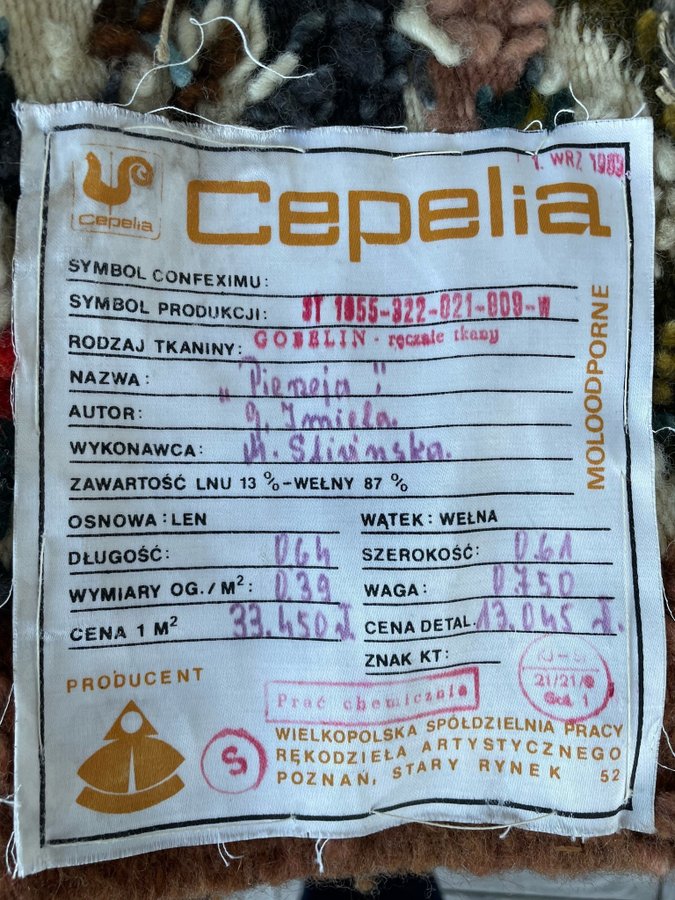 1. WRZ 1989
Cepelia
Cepelia
SYMBOL CONFEXIMU:
SYMBOL PRODUKCJI: ST 1055-322-021-809-W
RODZAJ TKANINY: GOBELIN - ręcznie tkany
NAZWA:
AUTOR: J. Imiela.
WYKONAWCA: M. Sliwinska.
ZAWARTOŚĆ LNU 13 %-WEŁNY 87 %
OSNOWA: LEN WĄTEK: WEŁNA
DŁUGOŚĆ: 0.64 SZEROKOŚĆ: 0.61
WYMIARY OG./M²: 0.39 WAGA: 0.750
CENA 1 M² 33.450 zł CENA DETAL. 13.045 zł.
ZNAK KT:
MOLOODPORNE
PRODUCENT
Prać chemicznie
21/21/8
Gat. 1
S
WIELKOPOLSKA SPÓŁDZIELNIA PRACY
RĘKODZIEŁA ARTYSTYCZNEGO
POZNAŃ, STARY RYNEK 52